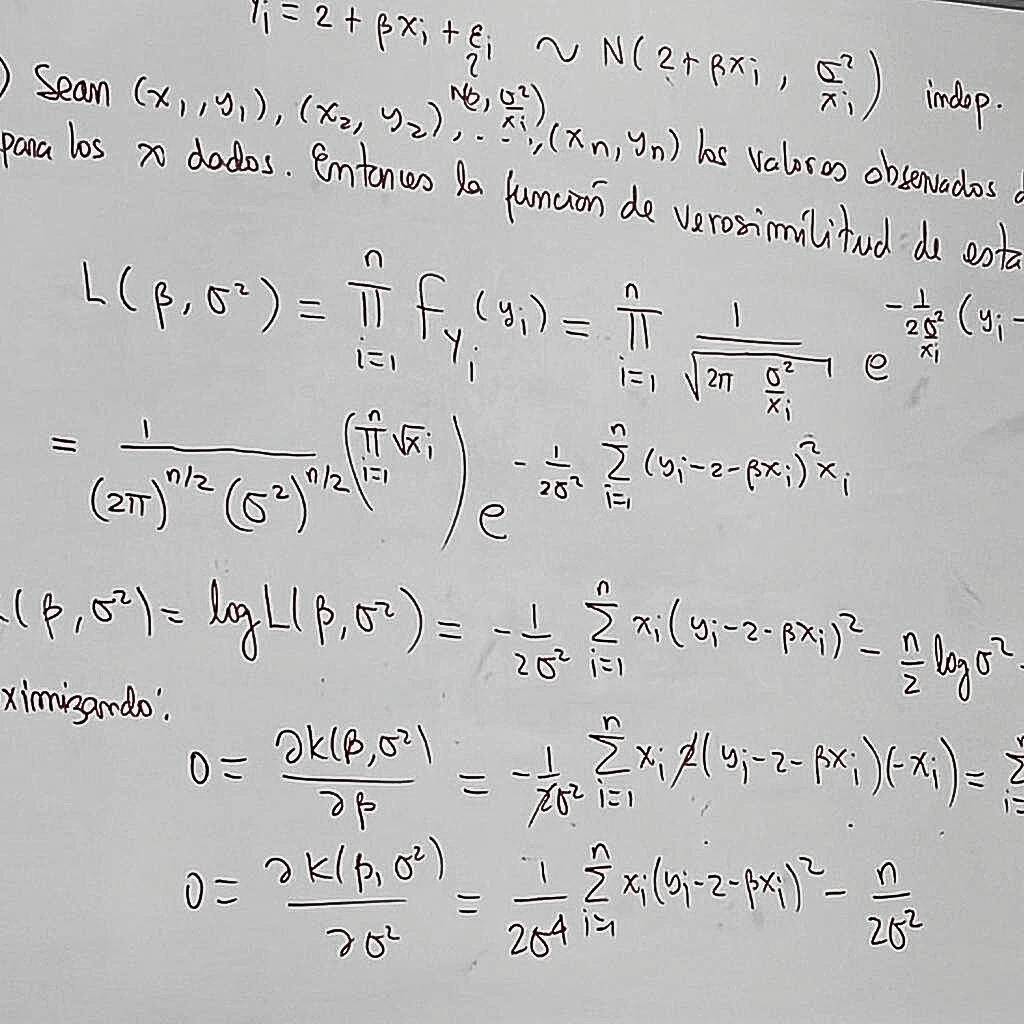 Yi = 2 + βxi + εi ~ N(2 + βxi, σ²/xi) indep.
N(0, σ²/xi)
) Sean (x1, y1), (x2, y2), ..., (xn, yn) los valores observados d
para los x dados. Entonces la función de verosimilitud de esta
L(β, σ²) = ∏_{i=1}^{n} f_{Yi}(yi) = ∏_{i=1}^{n} 1/√(2π σ²/xi) e^{-1/(2σ²/xi) (yi -
= 1/((2π)^{n/2} (σ²)^{n/2}) (∏_{i=1}^{n} √xi) e^{-1/(2σ²) ∑_{i=1}^{n} (yi - 2 - βxi)² xi}
(β, σ²) = log L(β, σ²) = -1/(2σ²) ∑_{i=1}^{n} xi(yi - 2 - βxi)² - n/2 log σ² -
ximizando:
0 = ∂k(β, σ²)/∂β = -1/(2σ²) ∑_{i=1}^{n} xi 2(yi - 2 - βxi)(-xi) = ∑_{i=
0 = ∂k(β, σ²)/∂σ² = 1/(2σ⁴) ∑_{i=1}^{n} xi(yi - 2 - βxi)² - n/(2σ²)